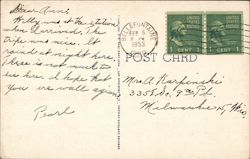 Dear Ann,
Willy was at the station
when I arrived. The
trip was nice. It
rained at night here.
There is not much to
see here. I hope that
you are well again
Pearl
BELLEFONTAINE
FEB 6
1953
OHIO
1 CENT 1
1 CENT 1
POST CARD
Mrs. A Karpinski
3358 So. 9th Pl.
Milwaukee, Wis.